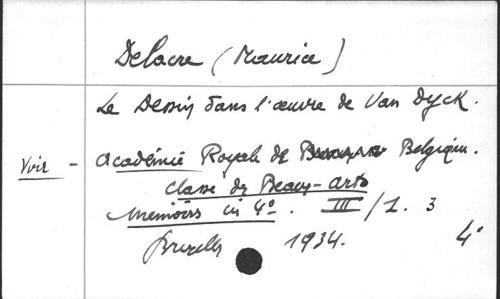 Delacre (Maurice)
Le Dessin dans l'œuvre de Van Dyck.
Voir - Académie Royale de Belgique.
Classe des Beaux-Arts
Memoires in 4º. III/1. 3
Bruxelles 1934. 4º